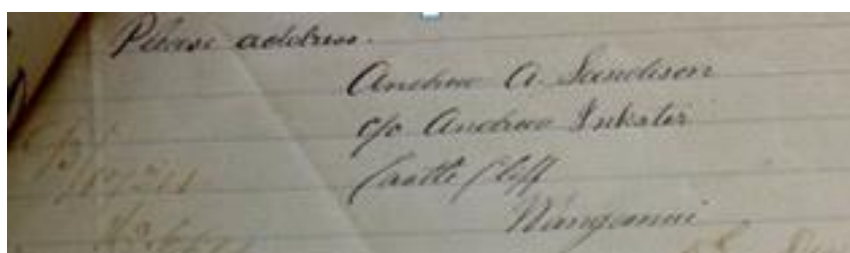 Please address.
Andrew A. Sandison
c/o Andrew Inkster
Castle Cliff
Wanganui